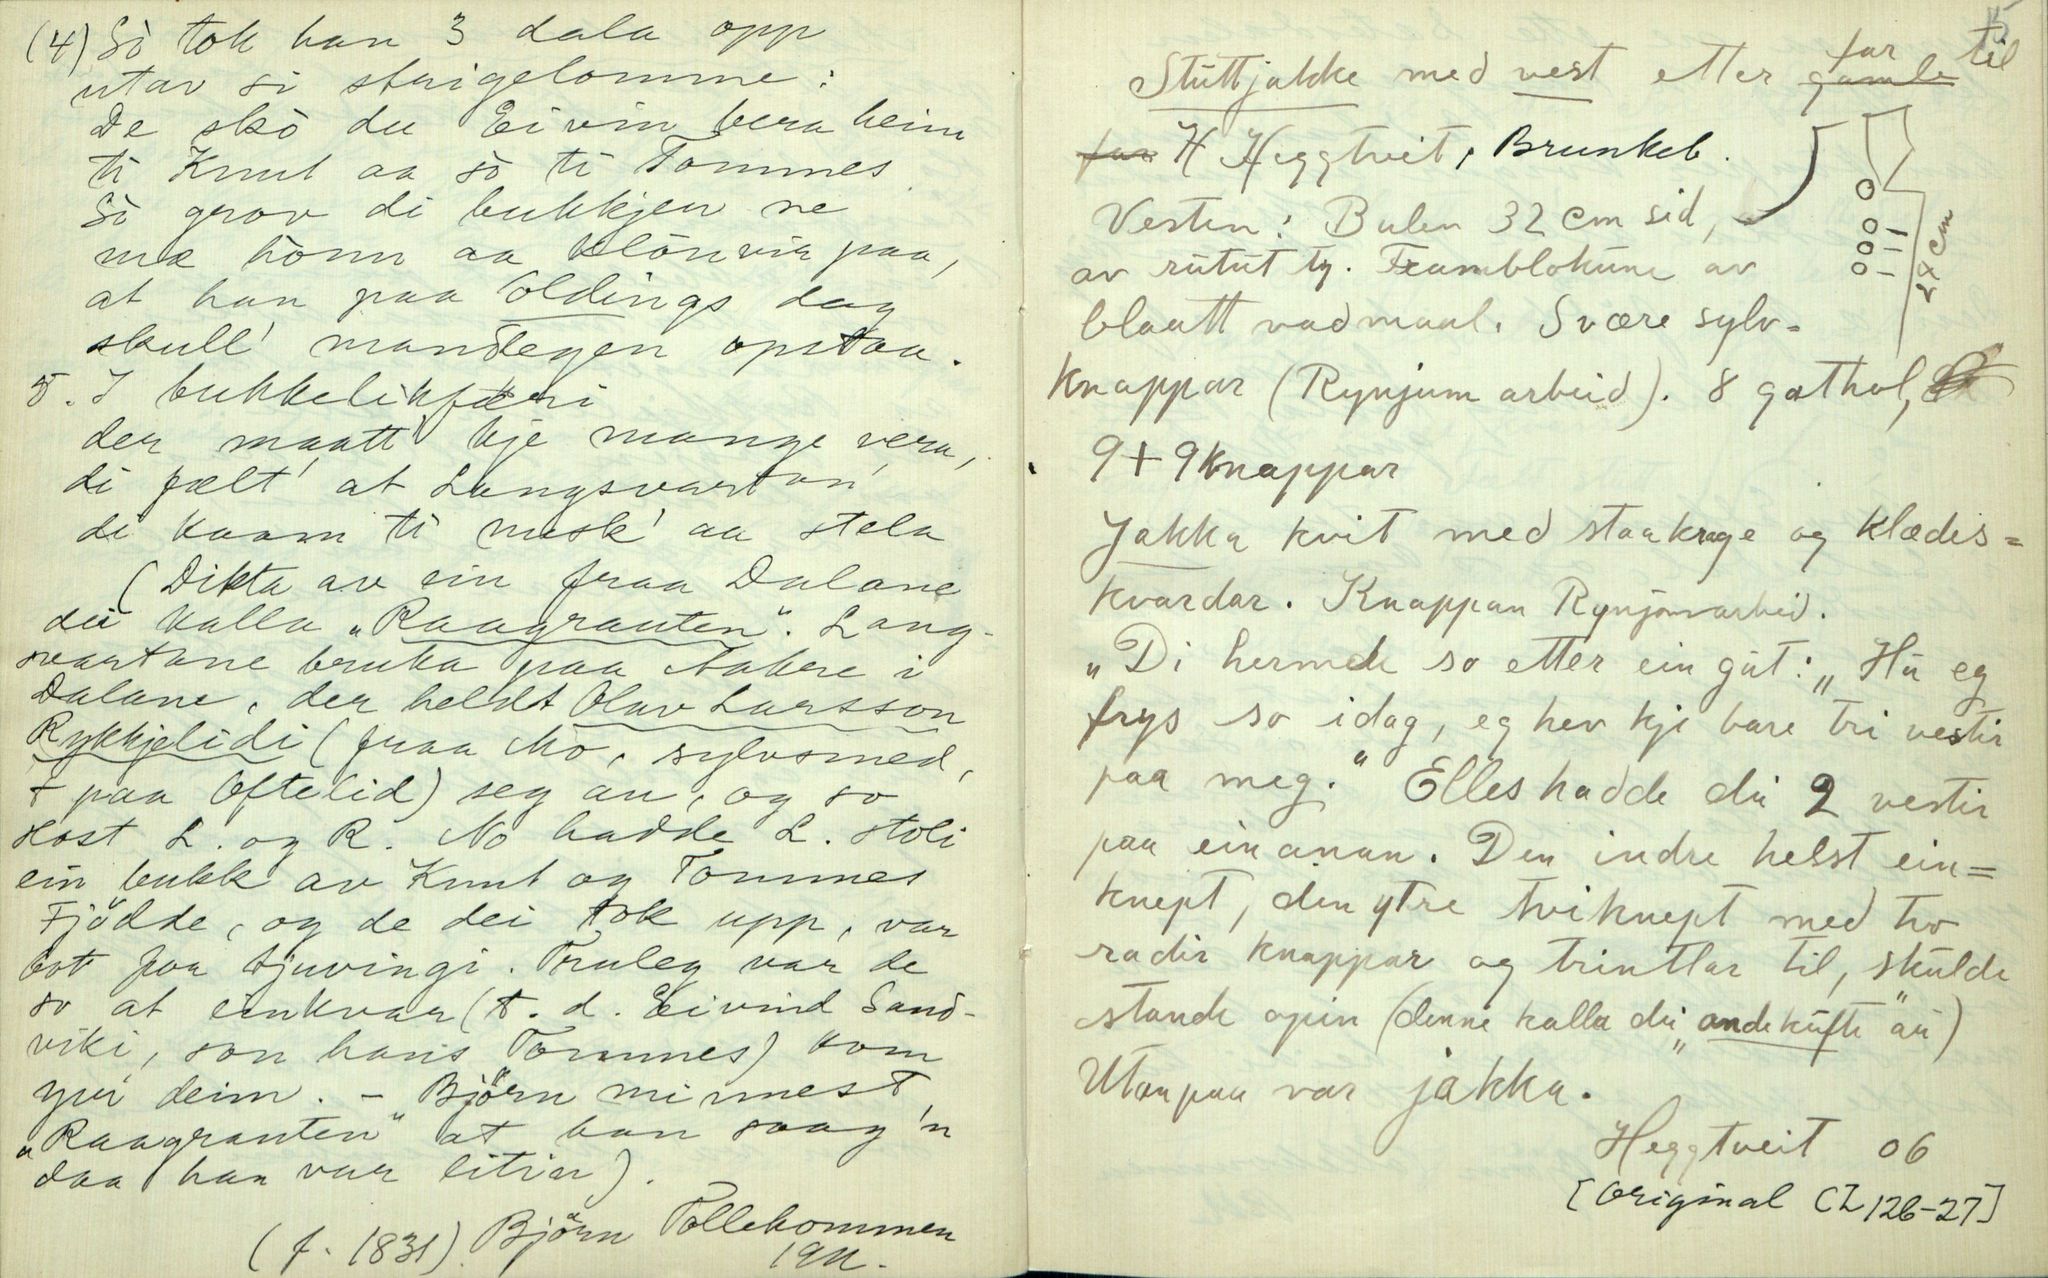 (4) Sò tok han 3 dala opp
utav si stuigelomme:
De skò du Eivin bera heim
ti Knut aa sò ti Tommes
Sò grov di bukkjen ne
mæ hònn aa klòuvir paa,
at han paa Oldings dag
skull' mandegen opstaa.
5. I bukkelikfæri
der maatt' kje mange vera,
di fælt' at Langsvartan'
di kaam ti nusk' aa stela
(Dikta av ein fraa Dalane
dei kalla „Raagrauten". Lang-
svartane bruka paa Aakre i
Dalane, der heldt Olav Larsson
Rykkjelidi (fraa Mo, sylvsmed,
+ paa Oftelid) seg au, og so
L. og R. No hadde L. stoli
ein bukk av Knut og Tommes
Fjödde, og de dei tok upp, var
bot for tjuvingi. Truleg var de
so at einkvar (t. d. Eivind Sand-
viki, son hans Tommes) kom
yvi deim. – Björn minnest
„Raagrauten" at han saag 'n
daa han var litin).
(f. 1831) Björn Tollehommen
1911.
15
Stuttjakke med vest etter gamle far til
far H Heggtveit, Brunkeb.
Vesten: Bulen 32 cm sid,
av rutut ty. Framblokune av
24 cm
blaatt vadmaal. Svære sylv-
knappar (Rynjum arbeid). 8 gathol,
9+9 knappar
Jakka kvit med staakrage og klædis-
kvardar. Knappan Rynjomarbeid.
„Di hermde so etter ein gut: „Hu eg
frys so idag, eg hev kje bare tri vestir
paa meg." Elles hadde dei 2 vestir
paa einanan. Den indre helst ein-
knept, den ytre tviknept med tvo
radir knappar og trintlar til, skulde
stande opin (denne kalla dei „andekufte" au)
Utanpaa var jakka.
Heggtveit 06
[Original CL 126-27]